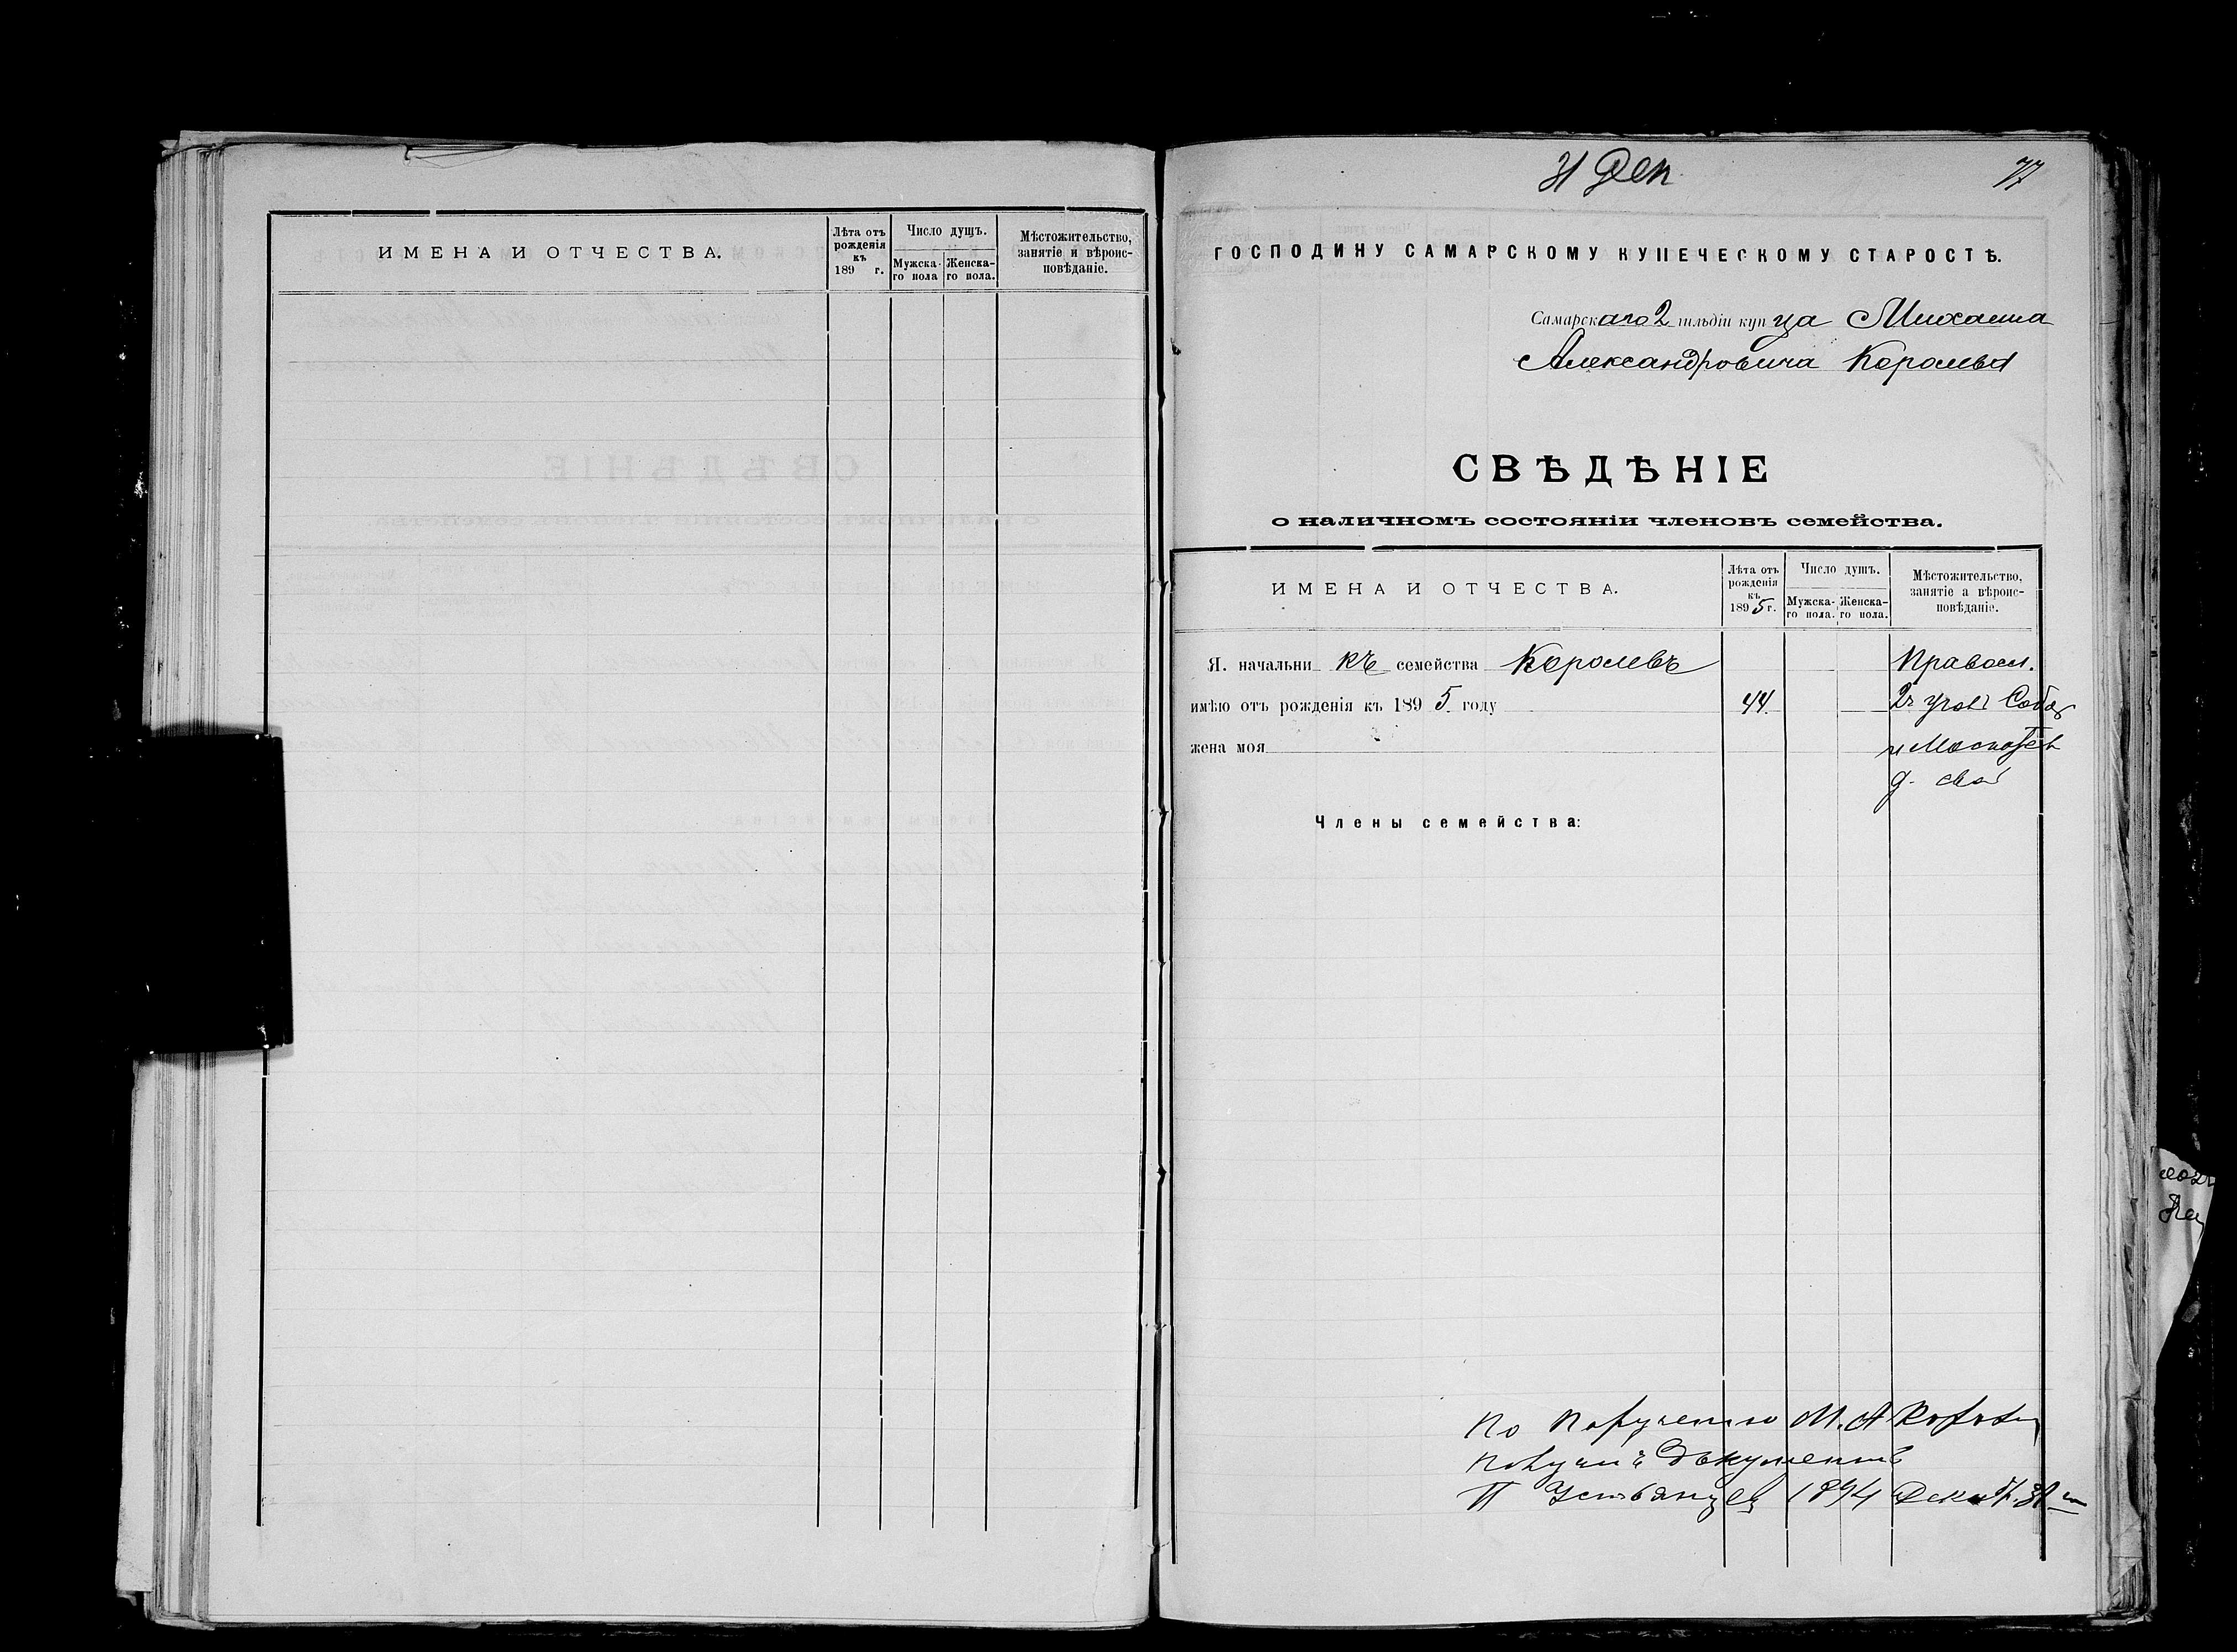 ИМЕНА И ОТЧЕСТВА.
Лѣта отъ рожденія къ 189 г.
Число душъ.
Мужскаго пола
Женскаго пола.
Мѣстожительство, занятіе и вѣроисповѣданіе.
31 Дек
77
ГОСПОДИНУ САМАРСКОМУ КУПЕЧЕСКОМУ СТАРОСТѢ.
Самарскаго 2 гильдіи купца Михаила
Александровича Королева
СВѢДѢНІЕ
о наличномъ состояніи членовъ семейства.
ИМЕНА И ОТЧЕСТВА.
Лѣта отъ рожденія къ 1895 г.
Число душъ.
Мужскаго пола.
Женскаго пола.
Мѣстожительство, занятіе а вѣроисповѣданіе.
Я, начальникъ семейства Королевъ Правосл.
имѣю отъ рожденія къ 1895 году 44 2ч Собор
жена моя и Москател
д. свой
Члены семейства:
По порученію М. А
получилъ документъ
П Устьянцев 1894 Дек 31